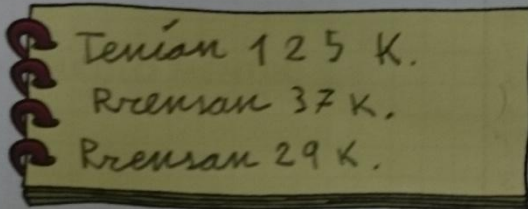 Tenían 125 K.
Rrensan 37 K.
Rrensan 29 K.